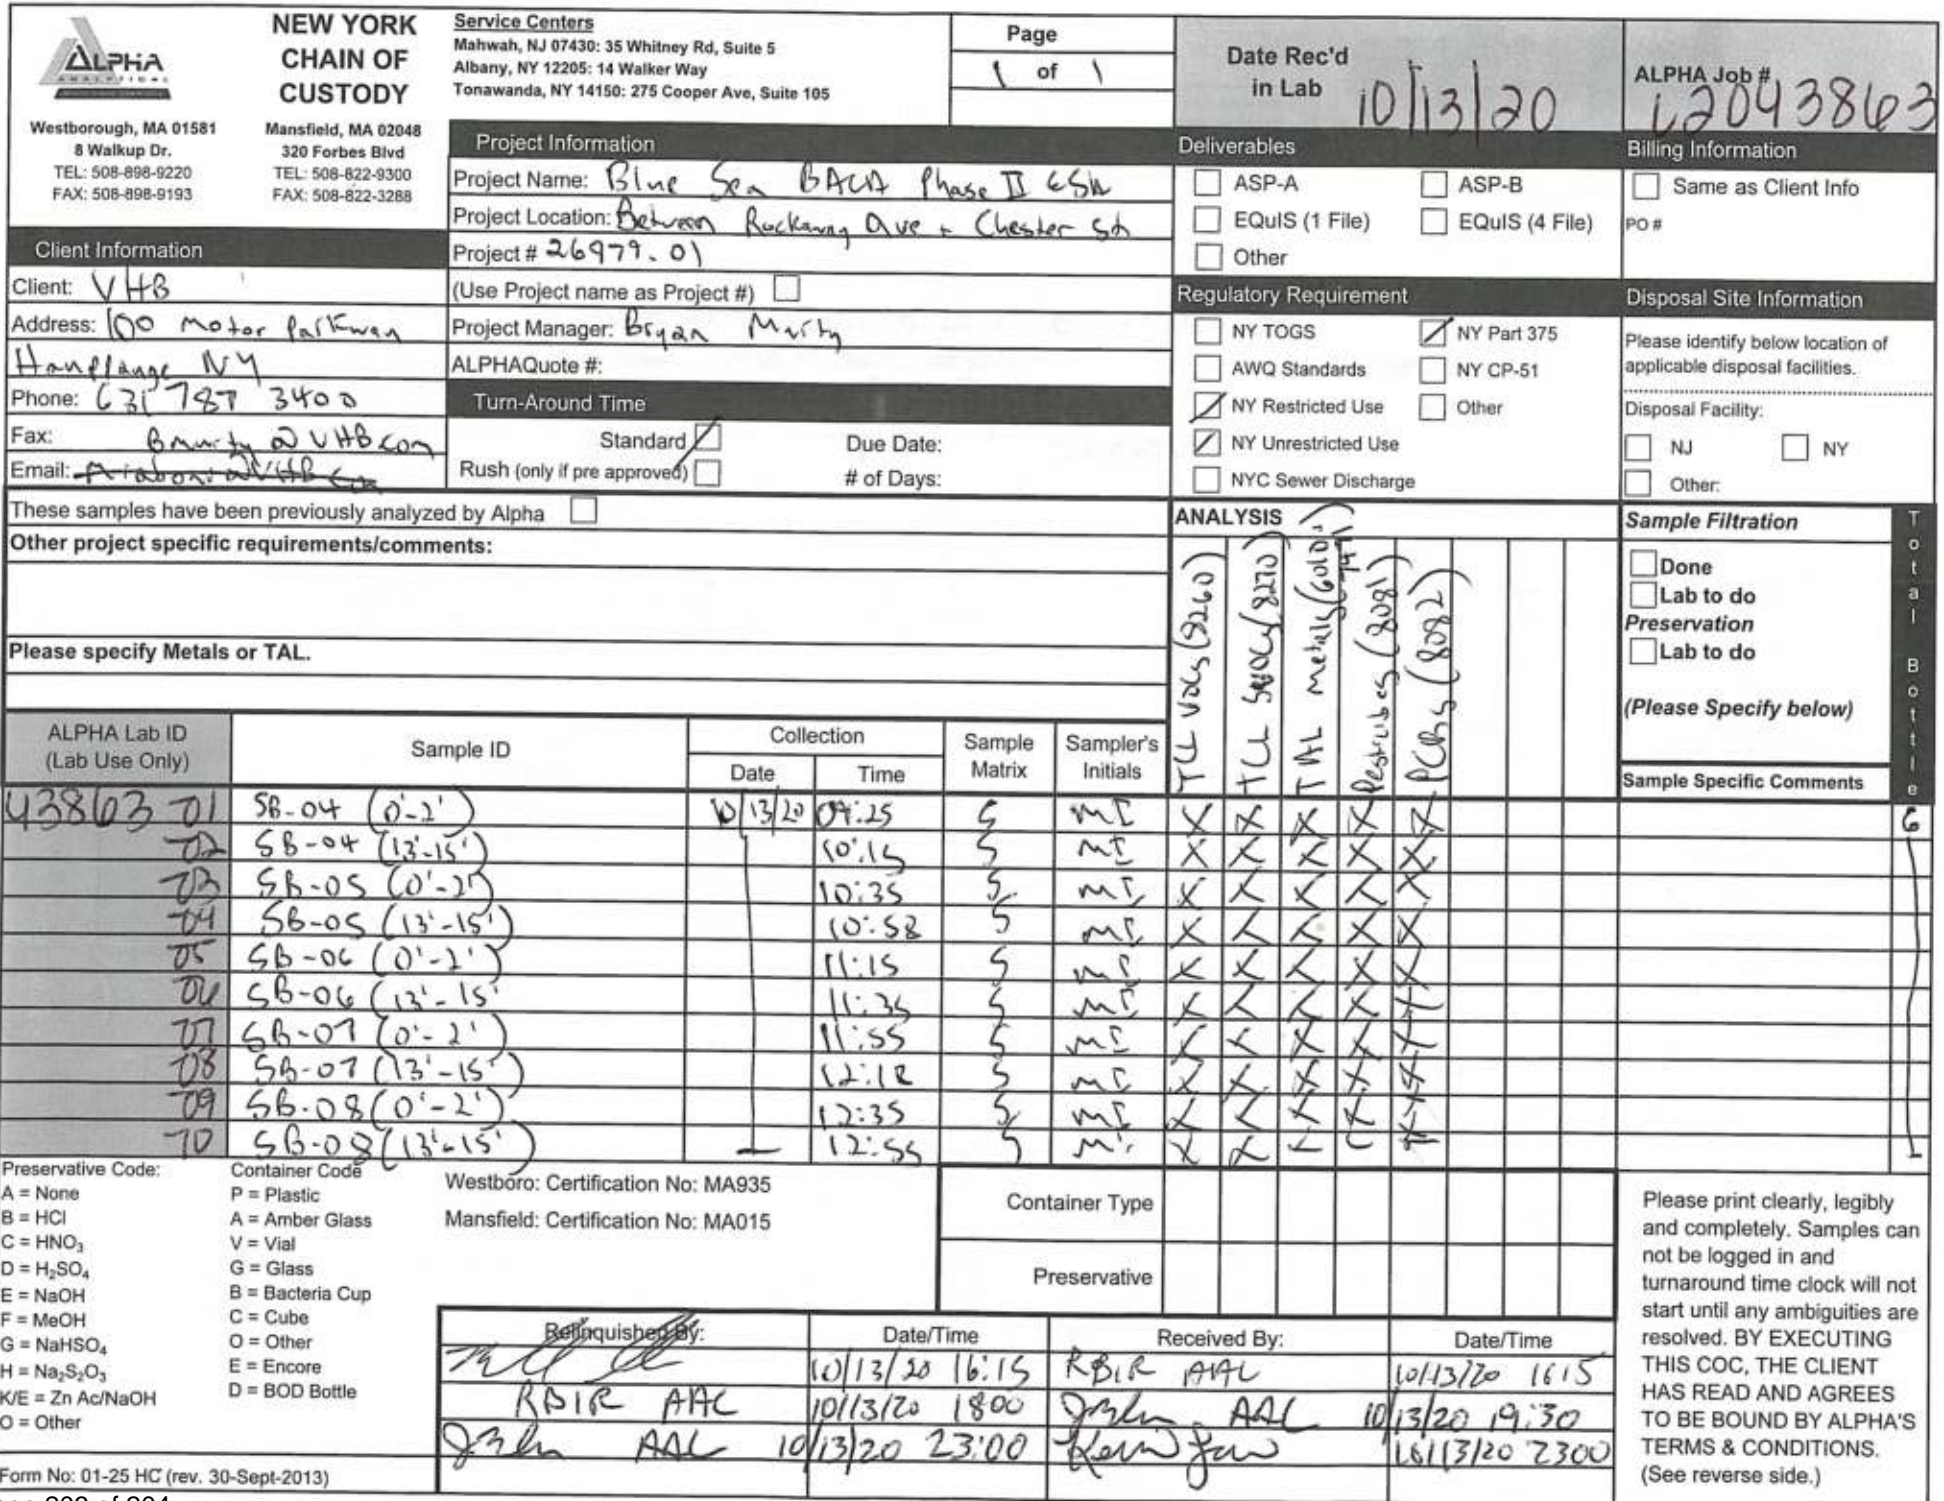 ALPHA
ANALYTICAL
NEW YORK
CHAIN OF
CUSTODY
Westborough, MA 01581
8 Walkup Dr.
TEL: 508-898-9220
FAX: 508-898-9193
Mansfield, MA 02048
320 Forbes Blvd
TEL: 508-822-9300
FAX: 508-822-3288
Service Centers
Mahwah, NJ 07430: 35 Whitney Rd, Suite 5
Albany, NY 12205: 14 Walker Way
Tonawanda, NY 14150: 275 Cooper Ave, Suite 105
Page
1 of 1
Date Rec'd
in Lab 10/13/20
ALPHA Job #
L2043863
Client Information
Client: VHB
Address: 100 Motor Parkway
Hauppauge NY
Phone: 631 787 3400
Fax:
Bmurty@VHB.com
Email:
Project Information
Project Name: Blue Sea BAOA Phase II ESA
Project Location: Between Rockaway Ave + Chester St
Project # 26979.01
(Use Project name as Project #)
Project Manager: Bryan Murty
ALPHAQuote #:
Turn-Around Time
Standard
Due Date:
Rush (only if pre approved)
# of Days:
Deliverables
ASP-A
ASP-B
EQuIS (1 File)
EQuIS (4 File)
Other
Regulatory Requirement
NY TOGS
NY Part 375
AWQ Standards
NY CP-51
NY Restricted Use
Other
NY Unrestricted Use
NYC Sewer Discharge
Billing Information
Same as Client Info
PO #
Disposal Site Information
Please identify below location of
applicable disposal facilities.
Disposal Facility:
NJ
NY
Other:
These samples have been previously analyzed by Alpha
Other project specific requirements/comments:
Please specify Metals or TAL.
ANALYSIS
TCL VOCs (8260)
TCL SVOCs (8270)
TAL metals (6010, 7471)
Pesticides (8081)
PCBs (8082)
Sample Filtration
Done
Lab to do
Preservation
Lab to do
(Please Specify below)
Sample Specific Comments
Total Bottle
ALPHA Lab ID
(Lab Use Only)
Sample ID
Collection
Date
Time
Sample
Matrix
Sampler's
Initials
43863 01 SB-04 (0'-2') 10/13/20 09:25 S MI X X X X X 6
02 SB-04 (13'-15') 10:15 S MI X X X X X
03 SB-05 (0'-2') 10:35 S MI X X X X X
04 SB-05 (13'-15') 10:58 S MI X X X X X
05 SB-06 (0'-2') 11:15 S MI X X X X X
06 SB-06 (13'-15' 11:35 S MI X X X X X
07 SB-07 (0'-2') 11:55 S MI X X X X X
08 SB-07 (13'-15') 12:18 S MI X X X X X
09 SB-08 (0'-2') 12:35 S MI X X X X X
10 SB-08 (13'-15') 12:55 S MI X X X X X
Preservative Code:
A = None
B = HCl
C = HNO₃
D = H₂SO₄
E = NaOH
F = MeOH
G = NaHSO₄
H = Na₂S₂O₃
K/E = Zn Ac/NaOH
O = Other
Container Code
P = Plastic
A = Amber Glass
V = Vial
G = Glass
B = Bacteria Cup
C = Cube
O = Other
E = Encore
D = BOD Bottle
Westboro: Certification No: MA935
Mansfield: Certification No: MA015
Container Type
Preservative
Relinquished By:
Date/Time
Received By:
Date/Time
10/13/20 16:15 RBIR AAL 10/13/20 1615
RBIR AAL 10/13/20 1800 AAL 10/13/20 19:30
AAL 10/13/20 23:00 10/13/20 2300
Please print clearly, legibly
and completely. Samples can
not be logged in and
turnaround time clock will not
start until any ambiguities are
resolved. BY EXECUTING
THIS COC, THE CLIENT
HAS READ AND AGREES
TO BE BOUND BY ALPHA'S
TERMS & CONDITIONS.
(See reverse side.)
Form No: 01-25 HC (rev. 30-Sept-2013)